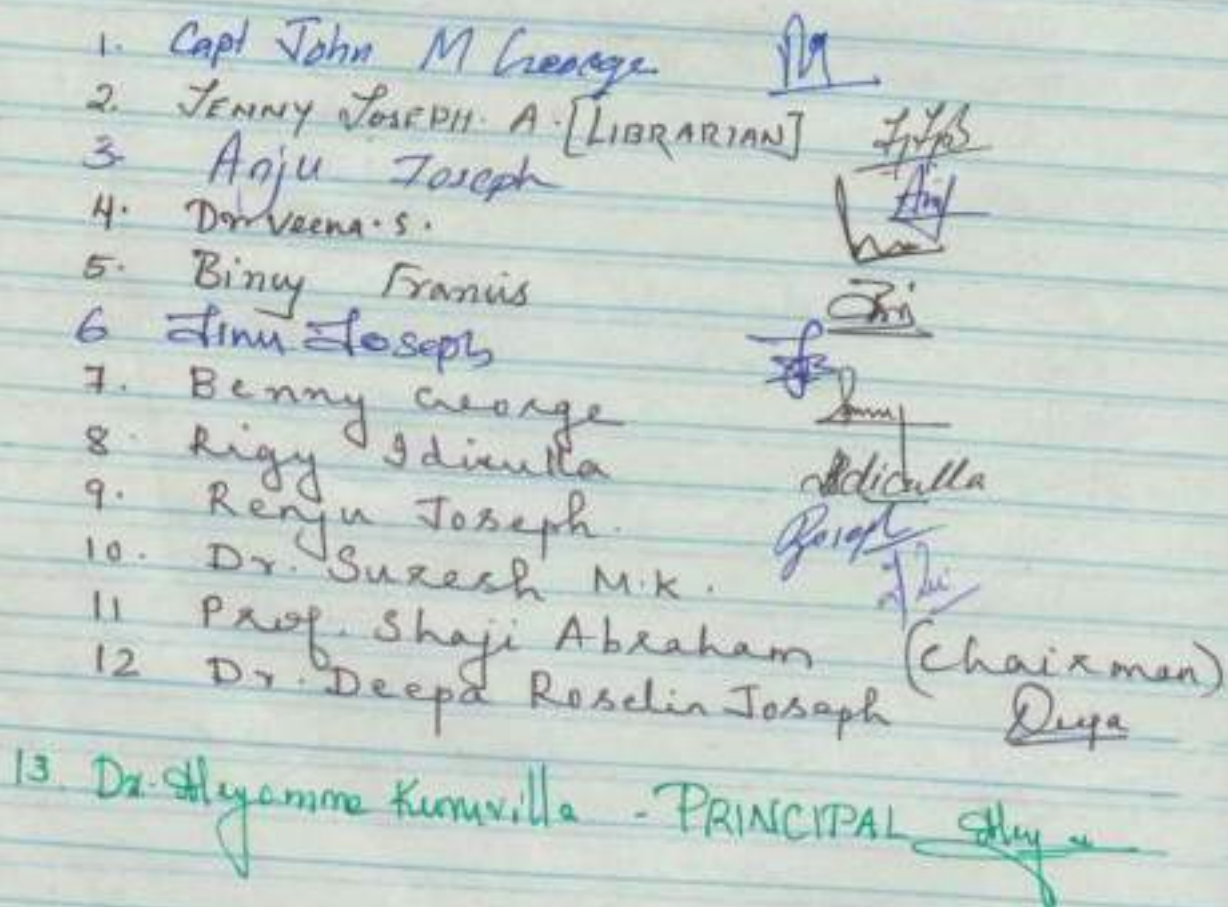 1. Capt John M George
2. JENNY JOSEPH. A. [LIBRARIAN]
3 Anju Joseph Anj
4. Dr. Veena. S.
5. Bincy Francis
6 Jinu Joseph
7. Benny George Benny
8 Rigy Idiculla Idiculla
9. Renju Joseph. RJoseph
10. Dr. Suresh M.K.
11 Prof. Shaji Abraham (Chairman)
12 Dr. Deepa Roselin Joseph Deepa
13. Dr. Aleyamma Kuruvilla - PRINCIPAL